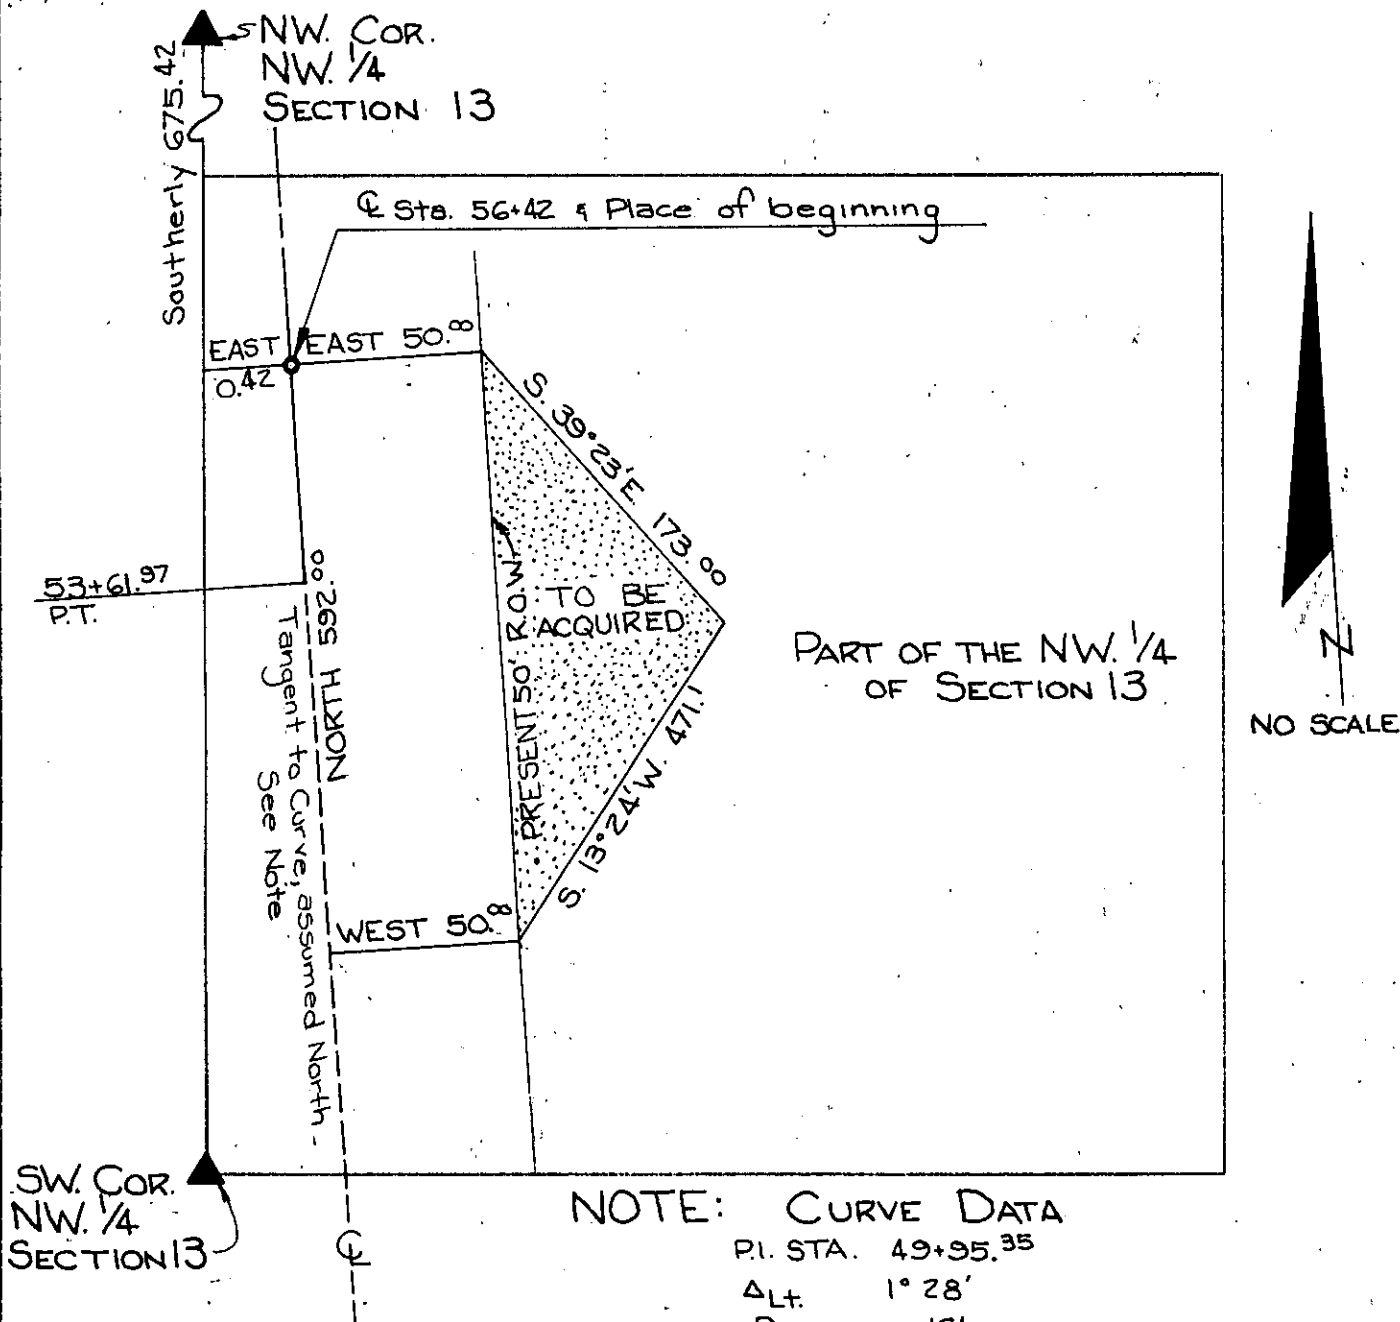 NW. COR.
NW. 1/4
SECTION 13
Southerly 675.42
℄ Sta. 56+42 & Place of beginning
EAST
0.42
EAST 50.00
S. 39°23'E. 173.00
53+61.97
P.T.
NORTH 592.00
Tangent to Curve, assumed North -
See Note
PRESENT 50' R.O.W.
TO BE
ACQUIRED
S. 13°24'W. 471.1
PART OF THE NW. 1/4
OF SECTION 13
N
NO SCALE
WEST 50.00
SW. COR.
NW. 1/4
SECTION 13
℄
NOTE: CURVE DATA
P.I. STA. 49+95.35
Δ Lt. 1° 28'